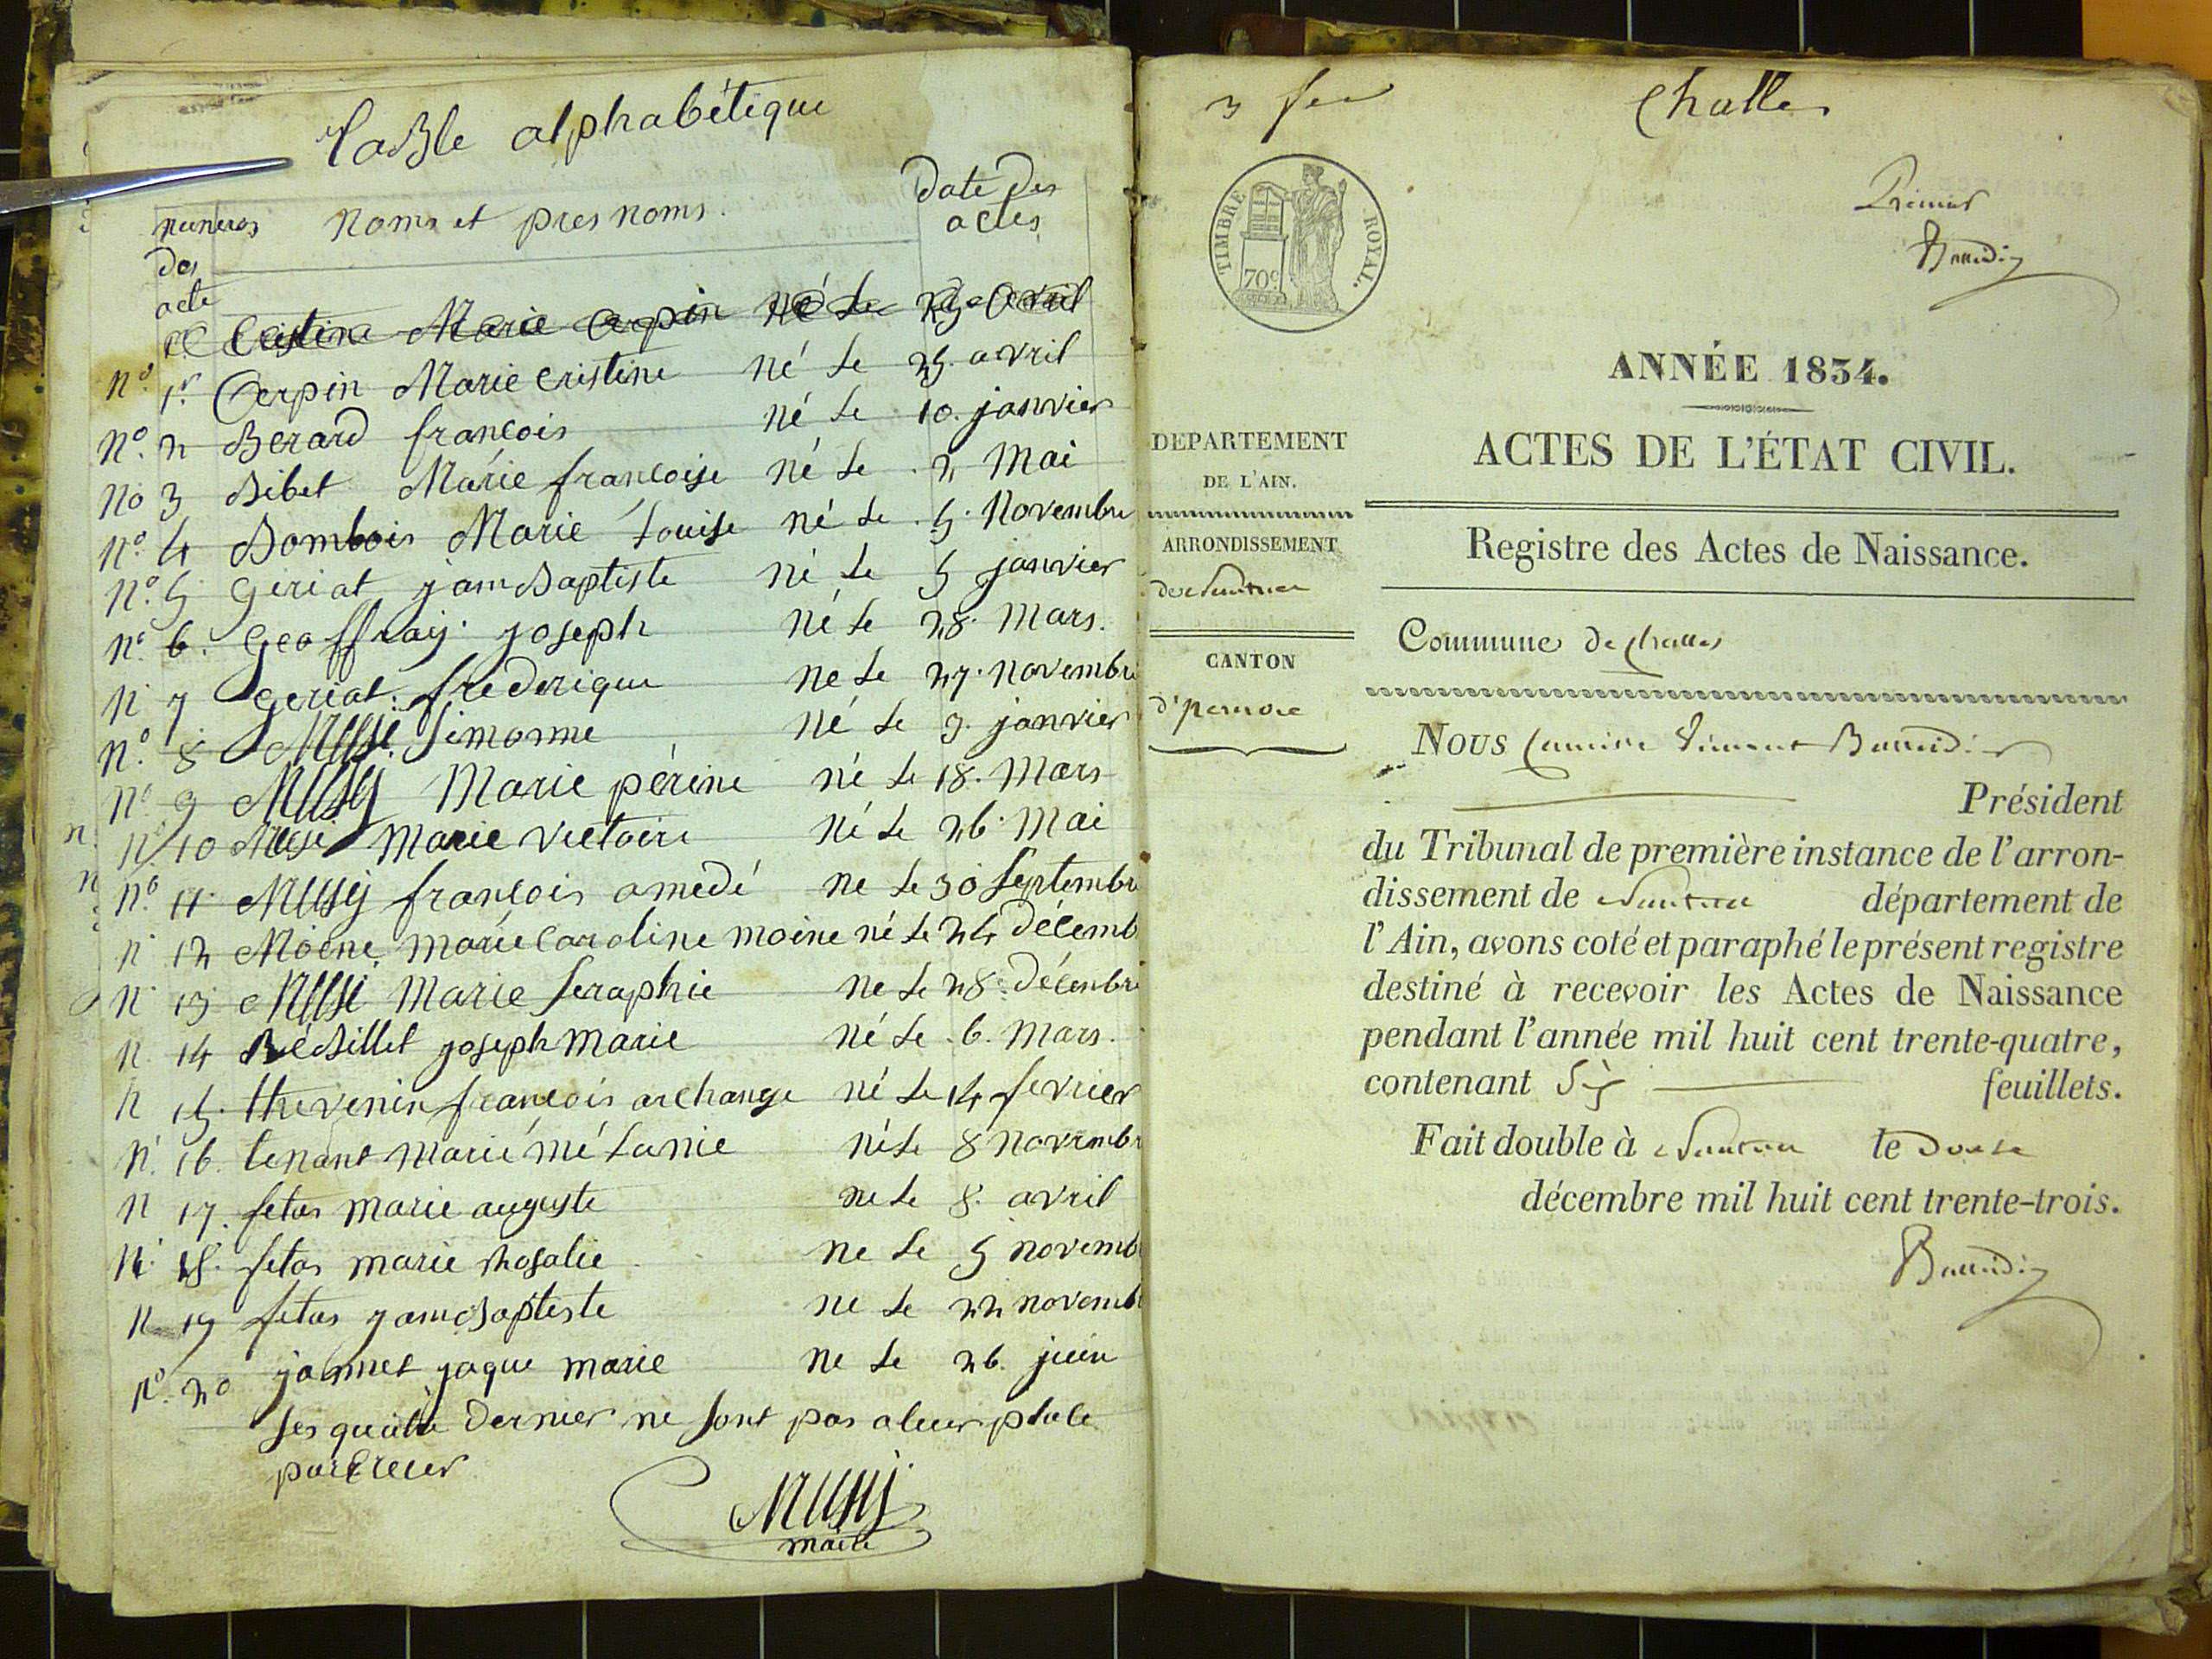 Table alphabétique
numeros des acte
noms et pres noms.
Date des actes
Cristine Marie Carpin né le 25 avril
n° 1er Carpin Marie Cristine né le 25. avril
n°. 2 Berard françois né le 10. janvier
no 3 Bibet Marie françoise né le . 2 Mai
n°. 4 Bombois Marie Louise né le . 5. Novembre
n°. 5 Geriat jam Baptiste né le 5 janvier
n°. 6. Geoffray. joseph né le 28. Mars.
n 7 Geriat. frederique ne le 27. novembre
n°. 8 Musi Simonne né le 9. janvier
n° 9 Musy Marie périne né le 18. Mars
n° 10 Musi Marie Victoire né le 26. Mai
n°. 11. Musy françois amedé ne le 30 Septembre
n. 12 Moene marie Caroline moine né le 24 décemb
n 13 Musi Marie Seraphie ne le 28. décembre
n. 14 Rébillet joseph Marie né le . 6. Mars.
n 15. thevenin françois archange né le 14 fevrier
n. 16. tenant Marie mélanie né le 8 novembr
n 17. fetas marie auguste ne le 8. avril
n. 18. fetas marie rhosalie ne le 5 novemb
n 19 fetas jam Baptiste ne le 22 novemb
n°. 20 jannet jaque marie ne le 26. juin
les quatre dernier ne sont pas a leur place
par Ereur
Musy
maire
Challes
Premier
TIMBRE ROYAL.
70c
ANNÉE 1834.
ACTES DE L'ÉTAT CIVIL.
Registre des Actes de Naissance.
DEPARTEMENT
DE L'AIN.
ARRONDISSEMENT
de Nantua
CANTON
d'
Commune de Challes
Nous
Président
du Tribunal de première instance de l'arron-
dissement de Nantua département de
l'Ain, avons coté et paraphé le présent registre
destiné à recevoir les Actes de Naissance
pendant l'année mil huit cent trente-quatre,
contenant Six feuillets.
Fait double à Nantua le Douze
décembre mil huit cent trente-trois.